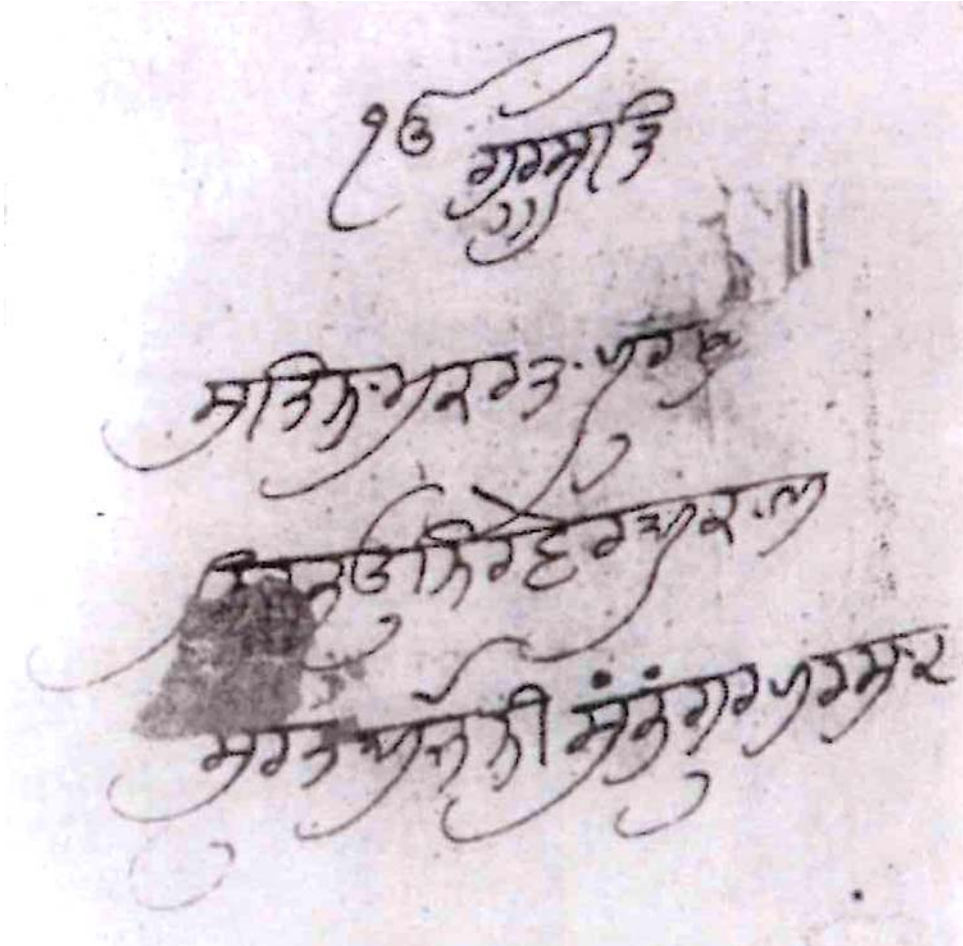 ੴ ਗੁਰਸਤਿ
ਸਤਿਨਾਮ ਕਰਤਾ ਪੁਰਖ
ਨਿਰਭਉ ਨਿਰਵੈਰ ਅਕਾਲ
ਮੂਰਤ ਅਜੋਨੀ ਸੰਭੰ ਗੁਰ ਪਰਸਾਦ